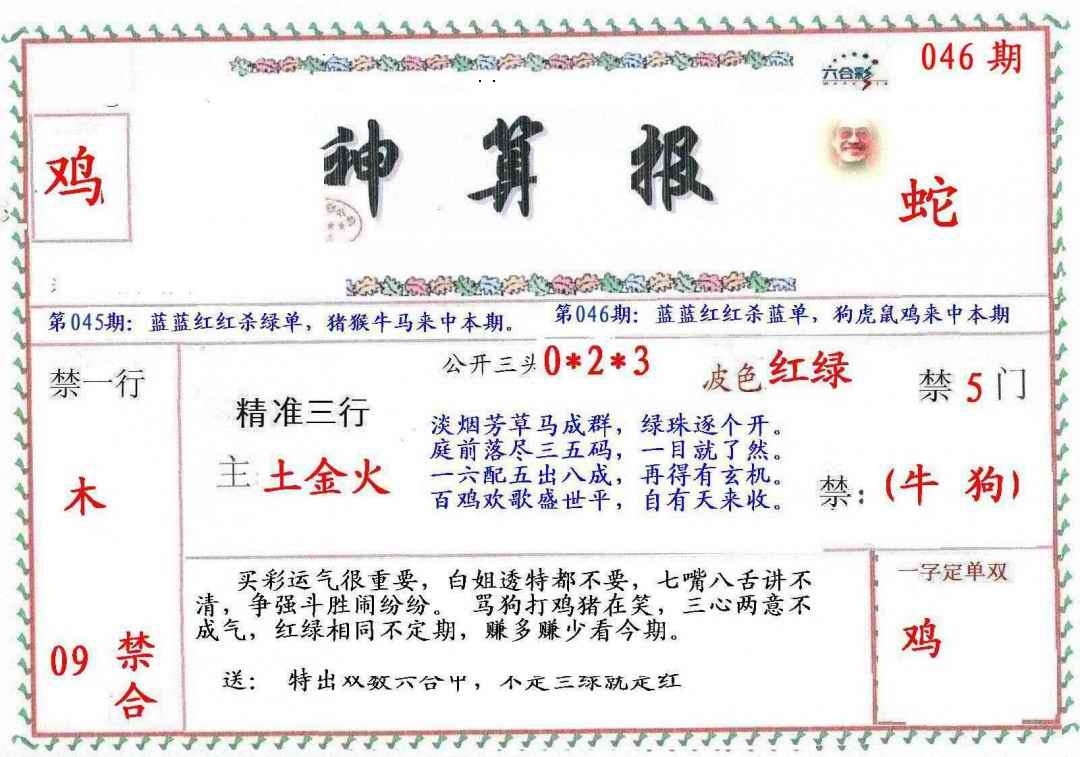 六合彩
046 期
鸡
神算报
蛇
第045期：蓝蓝红红杀绿单，猪猴牛马来中本期。
第046期：蓝蓝红红杀蓝单，狗虎鼠鸡来中本期
禁一行
木
09 禁合
公开三头 0*2*3
波色 红绿
精准三行
主 土金火
淡烟芳草马成群，绿珠逐个开。
庭前落尽三五码，一目就了然。
一六配五出八成，再得有玄机。
百鸡欢歌盛世平，自有天来收。
禁 5 门
禁：(牛 狗)
买彩运气很重要，白姐透特都不要，七嘴八舌讲不
清，争强斗胜闹纷纷。 骂狗打鸡猪在笑，三心两意不
成气，红绿相同不定期，赚多赚少看今期。
送： 特出双数六合中，不是三绿就是红
一字定单双
鸡